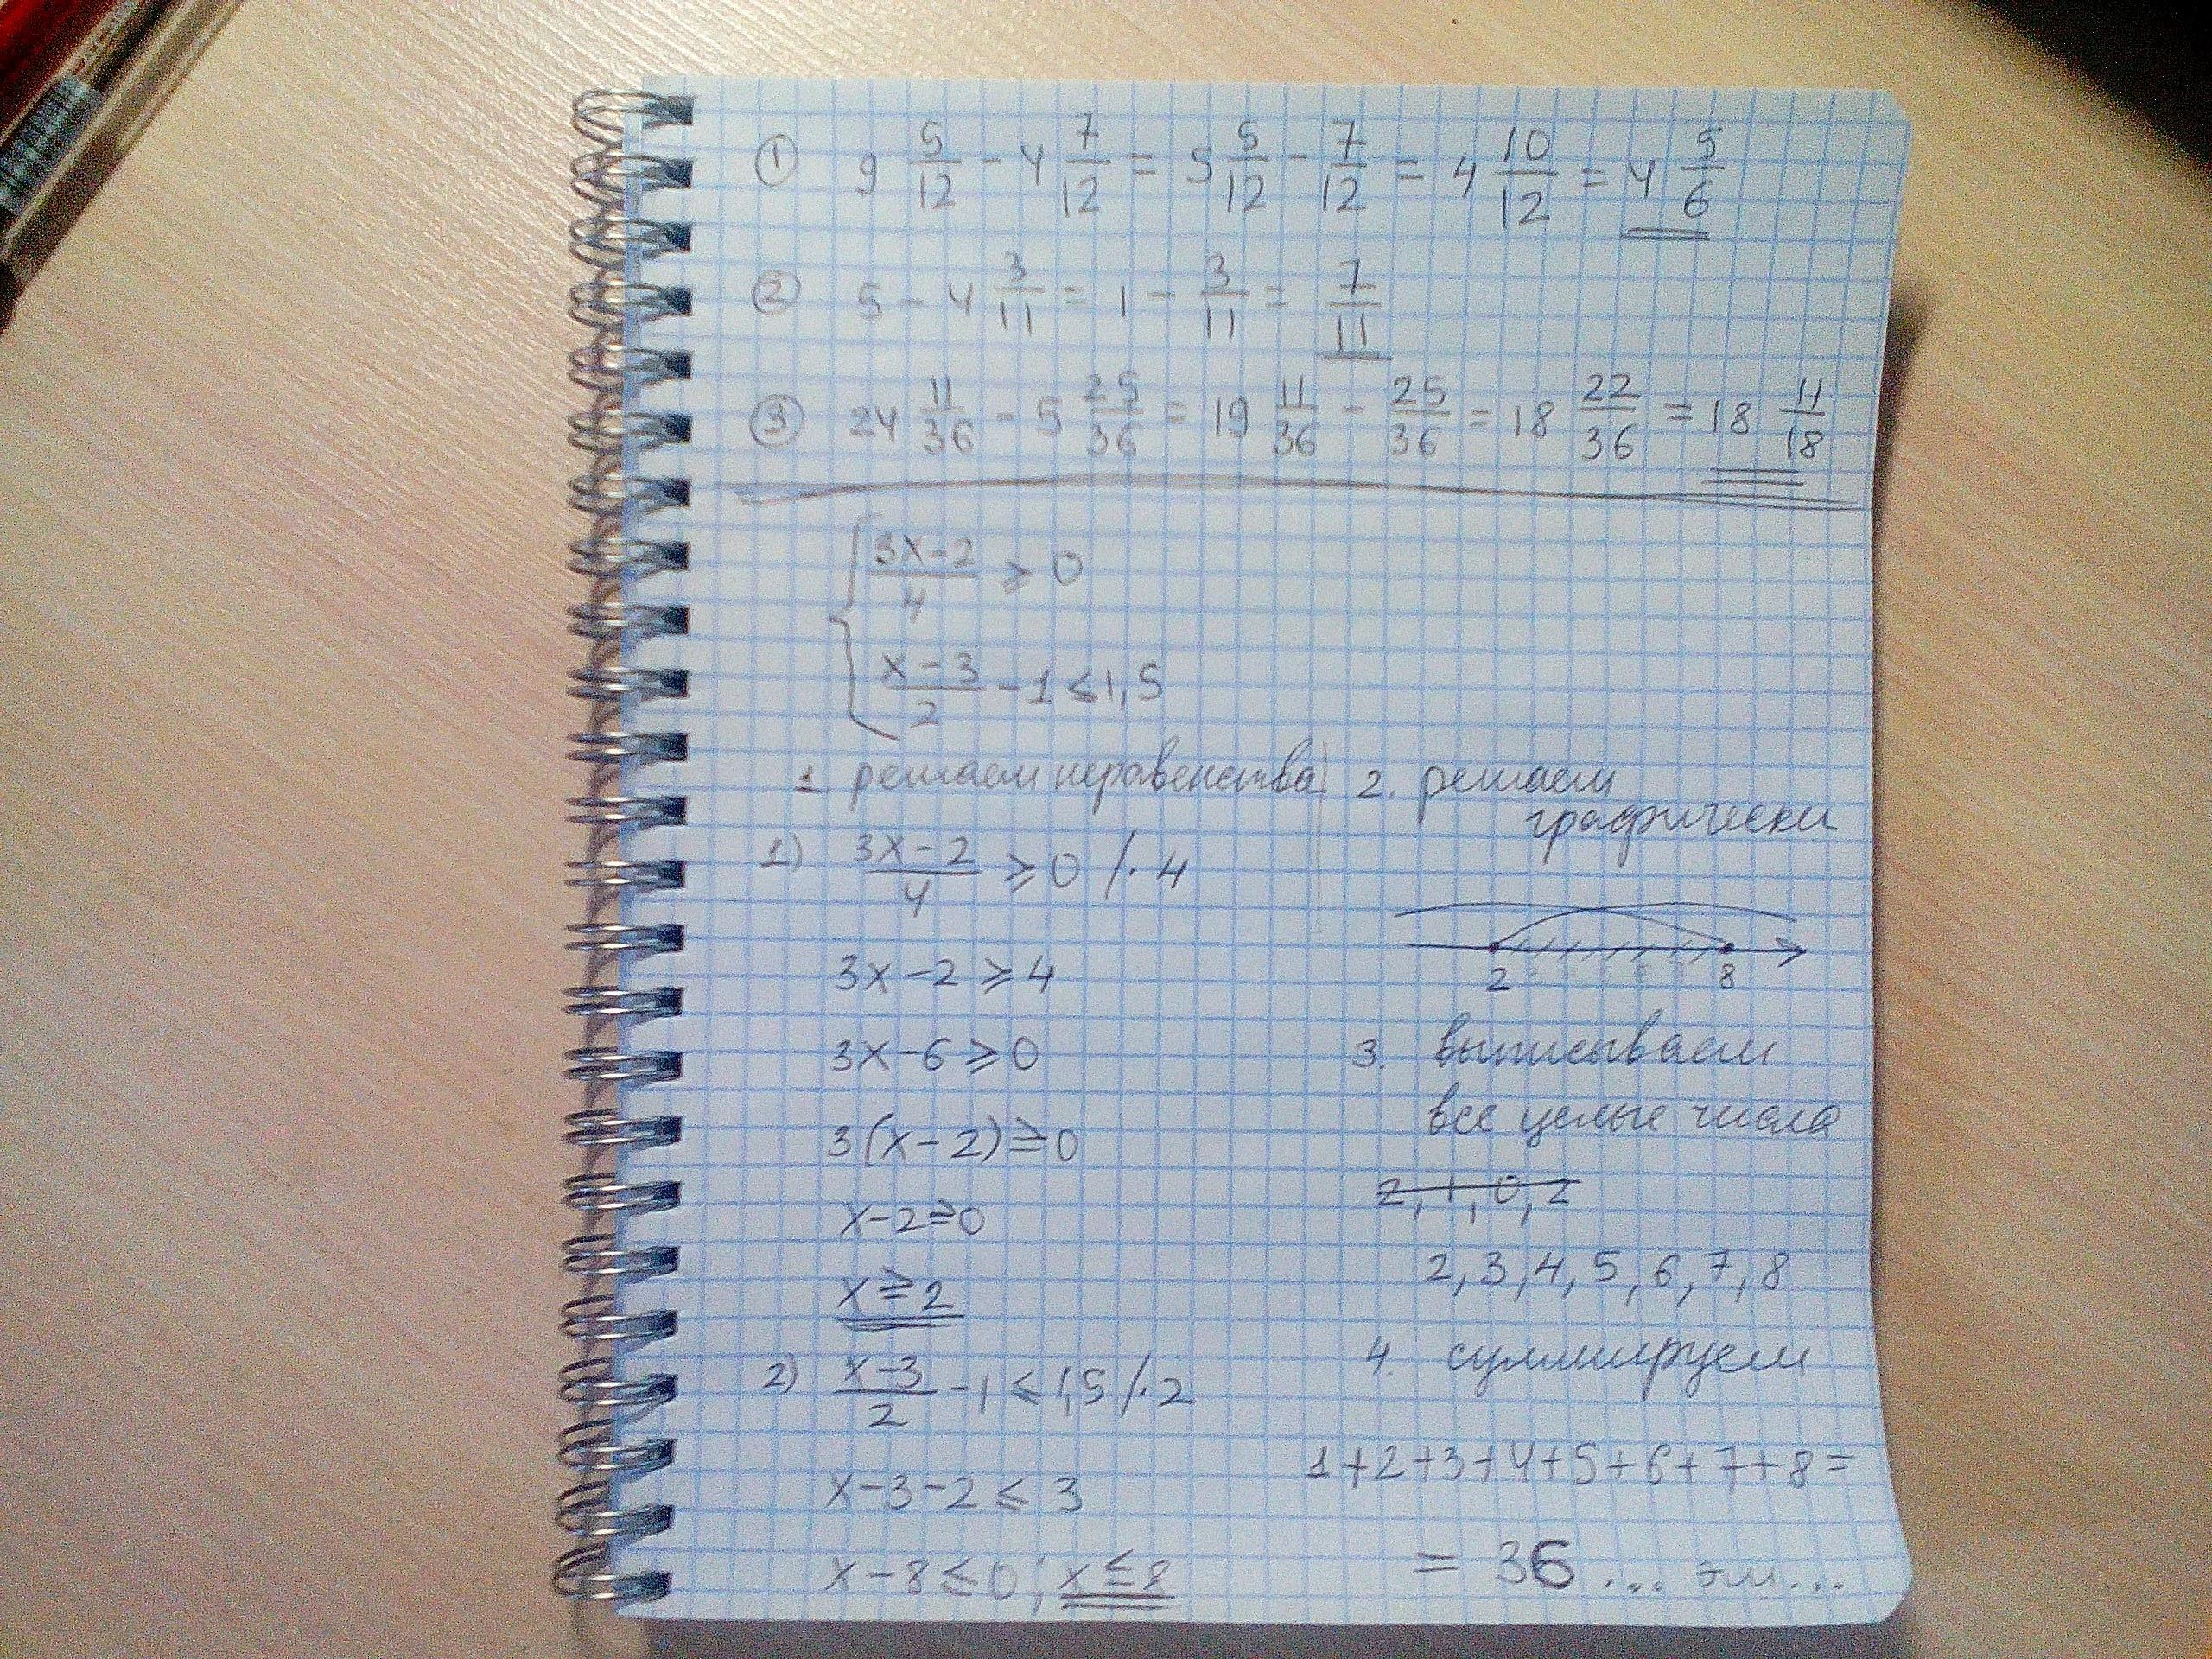 ① 9 5/12 - 4 7/12 = 5 5/12 - 7/12 = 4 10/12 = 4 5/6
② 5 - 4 3/11 = 1 - 3/11 = 7/11
③ 24 11/36 - 5 25/36 = 19 11/36 - 25/36 = 18 22/36 = 18 11/18
{ (3x-2)/4 ⩾ 0
(x-3)/2 - 1 ⩽ 1,5
1 решаем неравенства
1) (3x-2)/4 ⩾ 0 /·4
3x-2 ⩾ 4
3x-6 ⩾ 0
3(x-2) ⩾ 0
x-2 ⩾ 0
x ⩾ 2
2) (x-3)/2 - 1 ⩽ 1,5 /·2
x-3-2 ⩽ 3
x-8 ⩽ 0; x ⩽ 8
2. решаем
графически
2 8
3. выписываем
все целые числа
2, 1, 0, 2
2, 3, 4, 5, 6, 7, 8
4. суммируем
1+2+3+4+5+6+7+8=
= 36 ... эм...